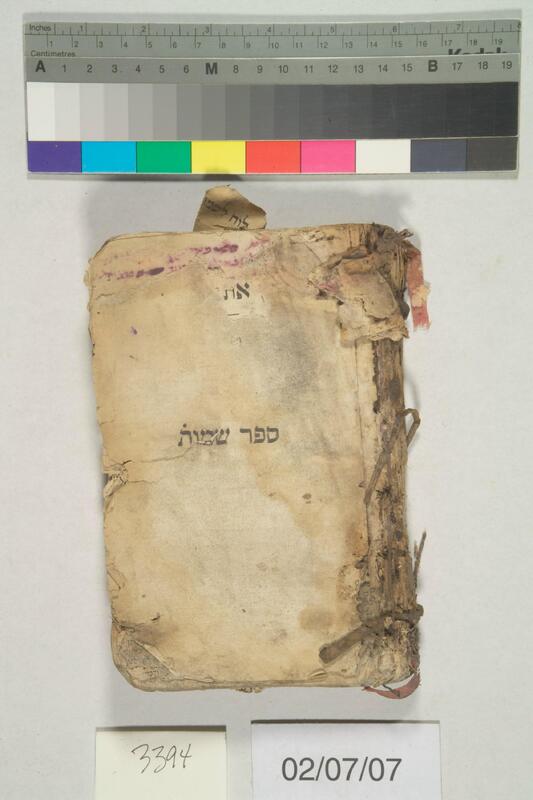 Inches 1 2 3 4 5 6 7 8
Centimetres 1 2 3 4 5 6 7 8 9 10 11 12 13 14 15 16 17 18 19
Kodak
A 1 2 3 4 5 6 M 8 9 10 11 12 13 14 15 B 17 18 19
לוח
את
ספר שמות
3394
02/07/07